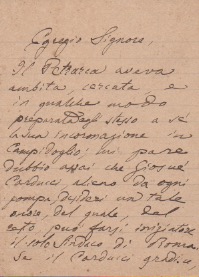 Egregio Signore,
Il Petrarca aveva
ambita, cercata e
in qualche modo
preparata egli stesso a sè
la sua incoronazione in
Campidoglio: mi pare
dubbio assai che Giosuè
Carducci, alieno da ogni
pompa, desideri un tale
onore, del quale, del
resto, può farsi iniziatore
il solo Sindaco di Roma.
Se il Carducci gradisce